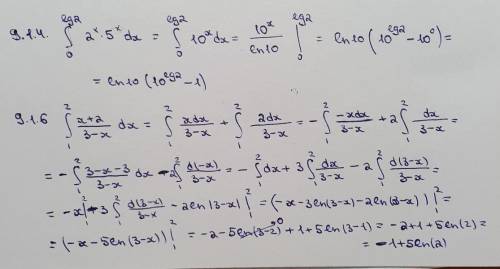 9.1.4. ∫₀^{lg2} 2ˣ·5ˣdx = ∫₀^{lg2} 10ˣdx = 10ˣ/ln10 |₀^{lg2} = ln10(10^{lg2} − 10⁰) =
= ln10(10^{lg2} − 1)
9.1.6 ∫₁² (x+2)/(3−x) dx = ∫₁² xdx/(3−x) + ∫₁² 2dx/(3−x) = −∫₁² −xdx/(3−x) + 2∫₁² dx/(3−x) =
= −∫₁² (3−x−3)/(3−x) dx − 2∫₁² d(−x)/(3−x) = −∫₁² dx + 3∫₁² dx/(3−x) − 2∫₁² d(3−x)/(3−x) =
= −x|₁² − 3∫₁² d(3−x)/(3−x) − 2ln|3−x| |₁² = (−x − 3ln(3−x) − 2ln(3−x))|₁² =
= (−x − 5ln(3−x))|₁² = −2 − 5ln(3−2)⁰ + 1 + 5ln(3−1) = −2 + 1 + 5ln(2) =
= −1 + 5ln(2)